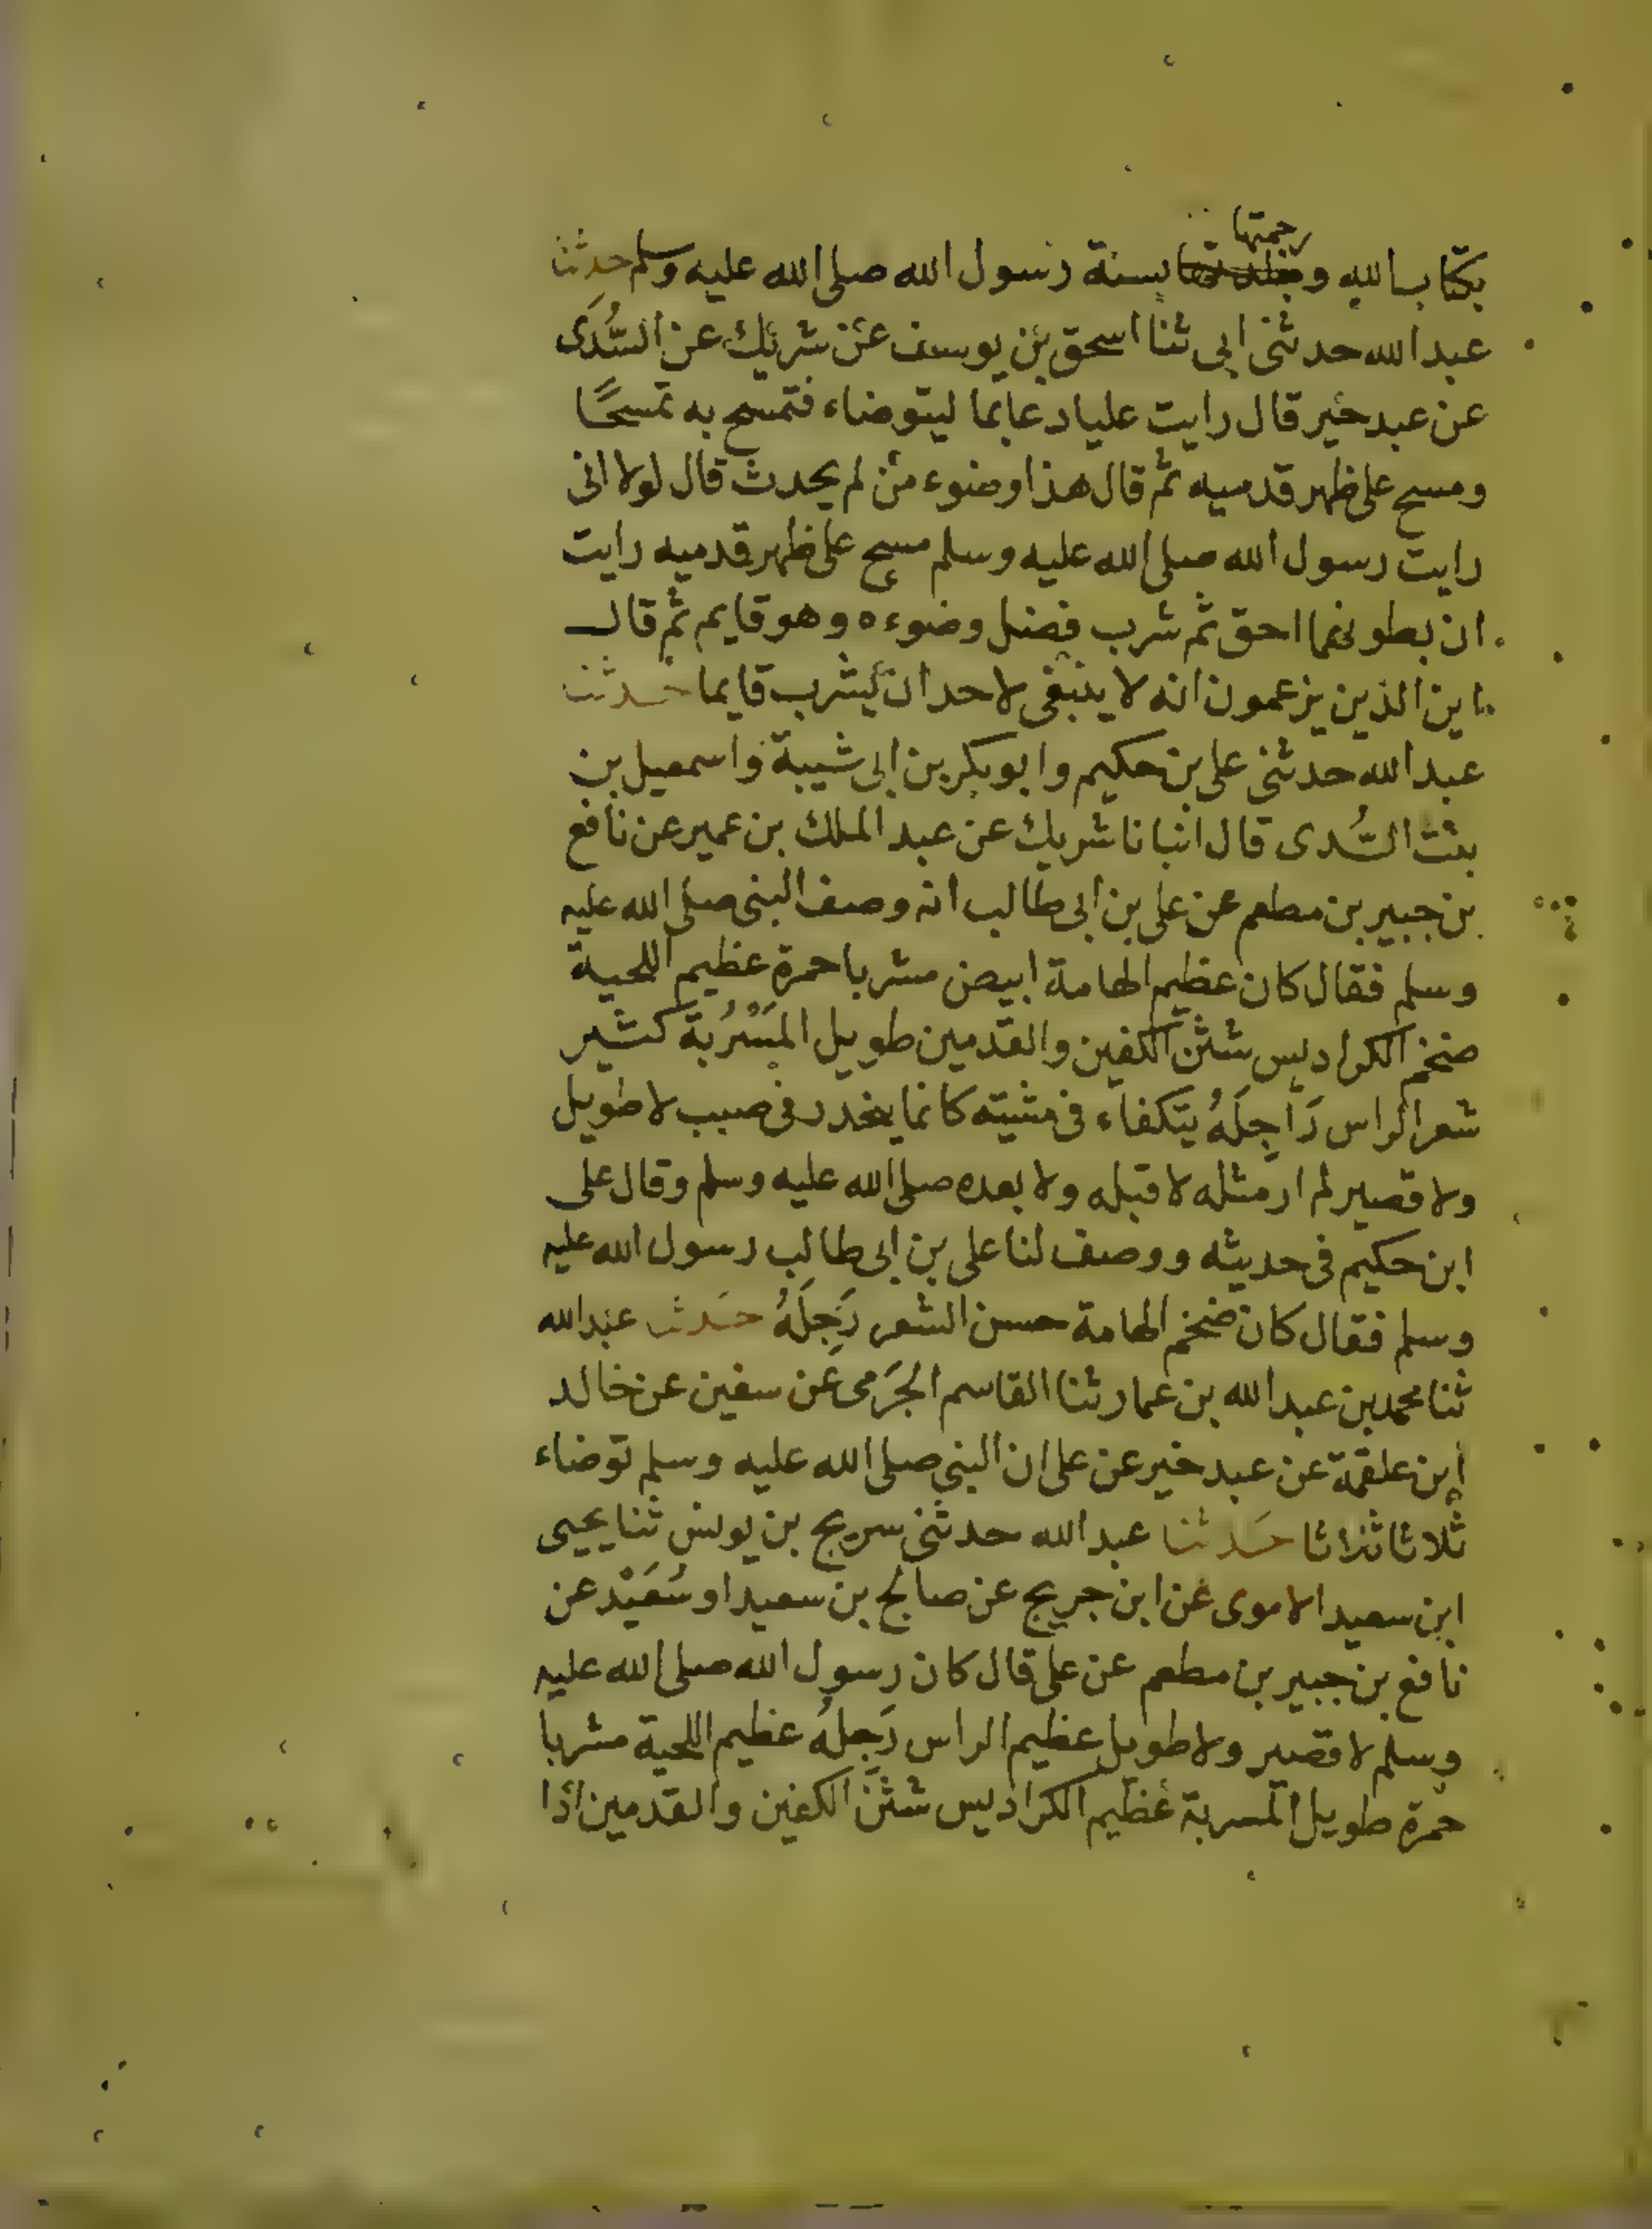 رجمتها
بكتاب الله و بسنة رسول الله صلى الله عليه وسلم حدثنا
عبد الله حدثنى ابى ثنا اسحق بن يوسف عن شريك عن السُّدى
عن عبد خير قال رايت عليا دعا بما ليتوضاء فتمسح به تمسحًا
ومسح على ظهر قدميه ثم قال هذا وضوء من لم يحدث قال لولا انى
رايت رسول الله صلى الله عليه وسلم مسح على ظهر قدميه رايت
ان بطونهما احق ثم شرب فضل وضوءه وهو قايم ثم قال
اين الذين يزعمون انه لا ينبغى لاحد ان يشرب قايما حدثنا
عبد الله حدثنى على بن حكيم وابو بكر بن ابى شيبة واسمعيل بن
بنت السُّدى قال انبانا شريك عن عبد الملك بن عمير عن نافع
بن جبير بن مطعم عن على بن ابى طالب انه وصف النبى صلى الله عليه
وسلم فقال كان عظيم الهامة ابيض مشربا حمرة عظيم اللحية
ضخم الكراديس شثن الكفين والقدمين طويل المَسْرُبة كثير
شعر الراس رَاجِلَهُ يتكفاء فى مشيته كانما ينحدر فى صبب لا طويل
ولا قصير لم ار مثله لا قبله ولا بعده صلى الله عليه وسلم وقال على
ابن حكيم فى حديثه ووصف لنا على بن ابى طالب رسول الله عليه
وسلم فقال كان ضخم الهامة حسن الشعر رَجِلَهُ حدثنا عبد الله
ثنا محمد بن عبد الله بن عمار ثنا القاسم الجَرمى عن سفين عن خالد
ابن علقمة عن عبد خير عن على ان النبى صلى الله عليه وسلم توضاء
ثلاثا ثلاثا حَدثنا عبد الله حدثنى سريج بن يونس ثنا يحيى
ابن سعيد الاموى عن ابن جريج عن صالح بن سعيد او سُعَيْد عن
نافع بن جبير بن مطعم عن على قال كان رسول الله صلى الله عليه
وسلم لا قصير ولا طويل عظيم الراس رَجِلَهُ عظيم اللحية مشربا
حمرة طويل المسربة عظيم الكراديس شثن الكفين والقدمين اذا